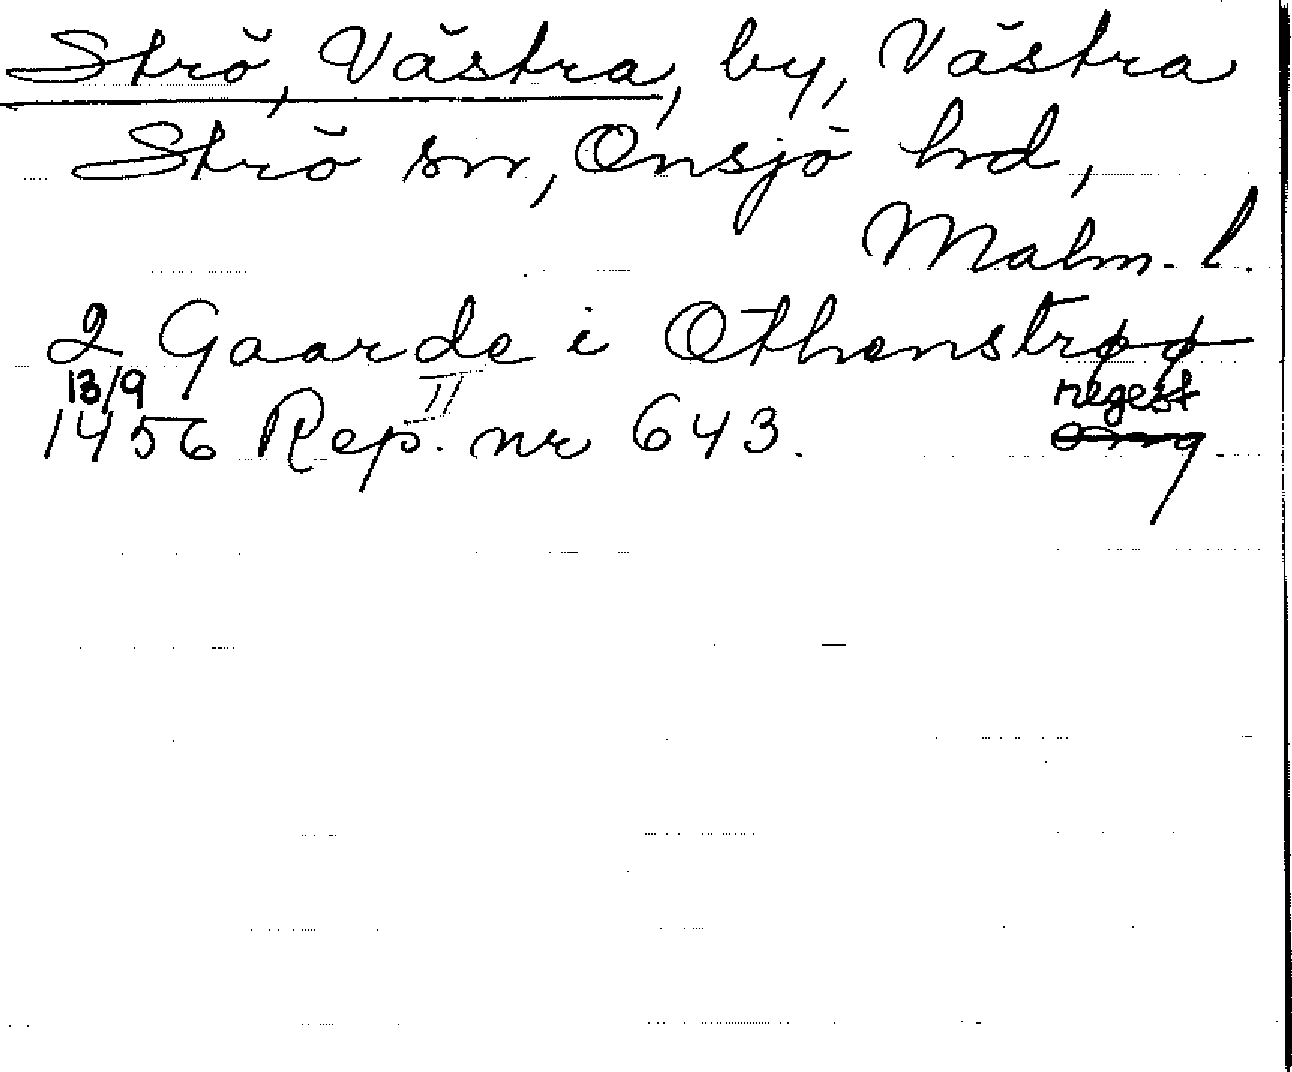 Strö, Västra, by, Västra
Strö sn, Onsjö hd,
Malm. l.
2 Gaarde i Othenstrøø
13/9 II regest
1456 Rep. nr 643.